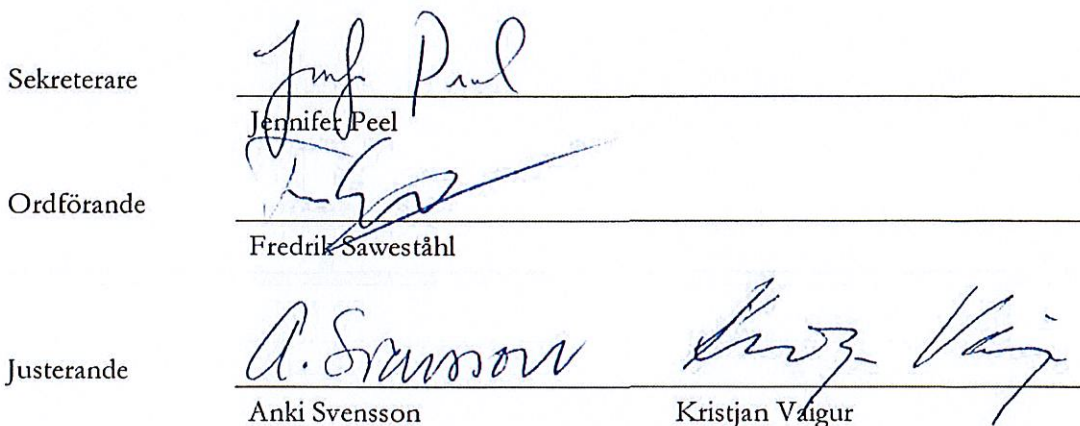 Sekreterare
Jennifer Peel
Ordförande
Fredrik Saweståhl
A. Svensson
Justerande
Anki Svensson Kristjan Vaigur